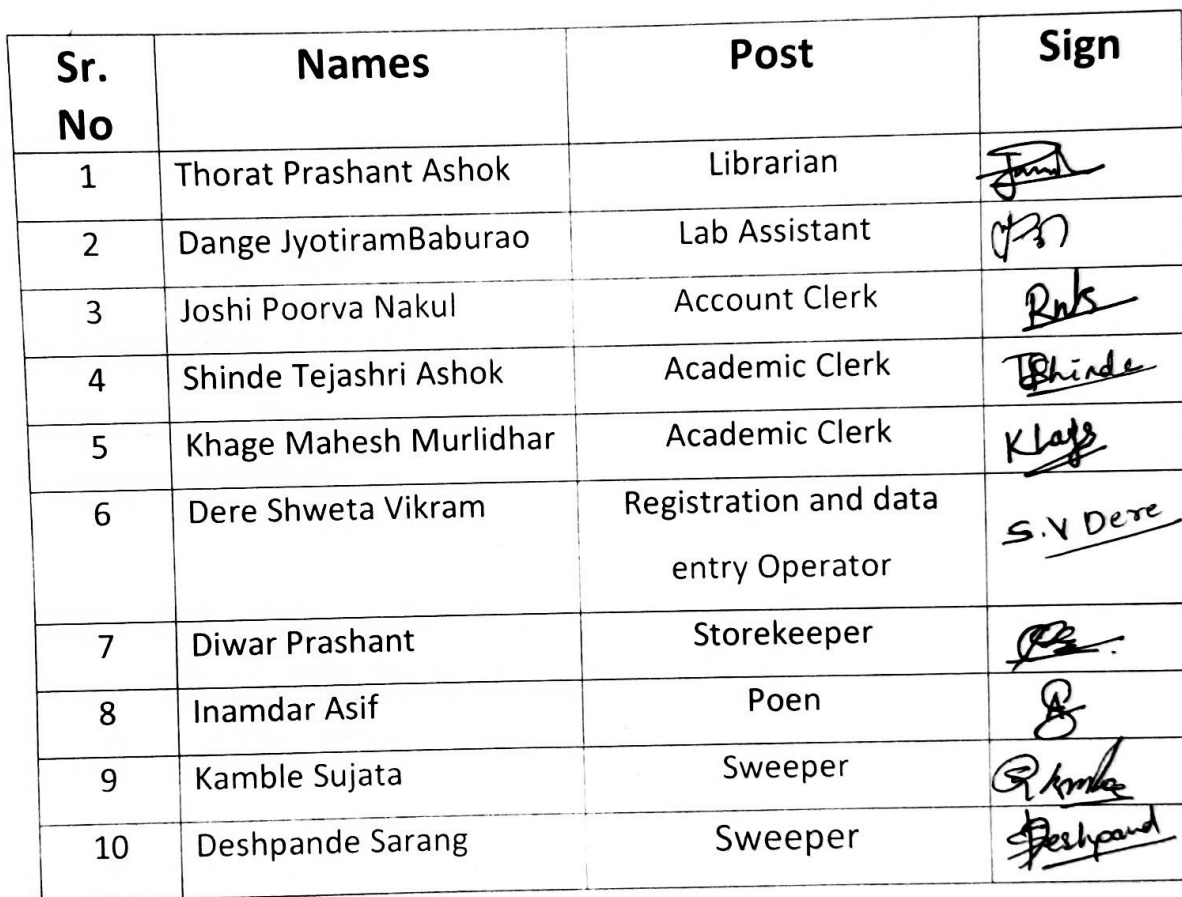 Sr. No Names Post Sign
1 Thorat Prashant Ashok Librarian
2 Dange JyotiramBaburao Lab Assistant
3 Joshi Poorva Nakul Account Clerk
4 Shinde Tejashri Ashok Academic Clerk TShinde
5 Khage Mahesh Murlidhar Academic Clerk
6 Dere Shweta Vikram Registration and data S.V Dere
entry Operator
7 Diwar Prashant Storekeeper
8 Inamdar Asif Poen
9 Kamble Sujata Sweeper
10 Deshpande Sarang Sweeper